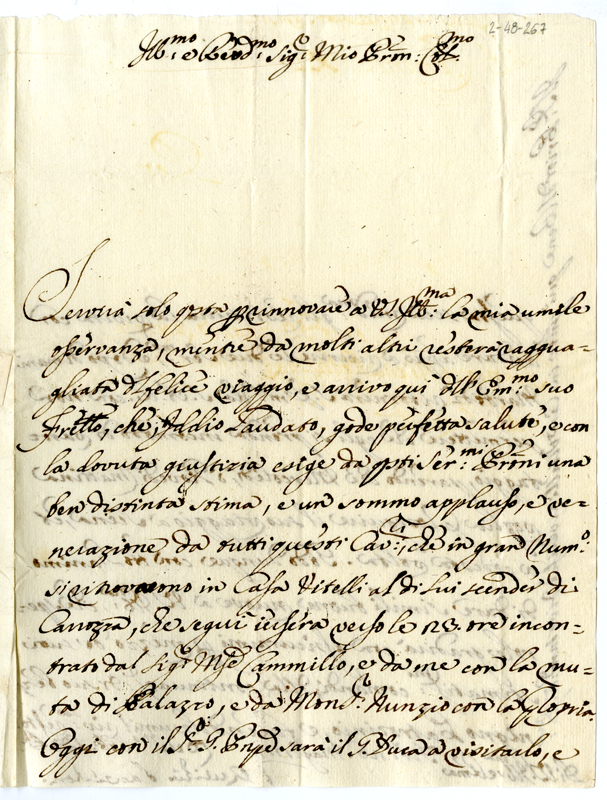 2-48-267
Ill.mo e Revd.mo Sig.r Mio Prōn: Col.mo
Servirà solo qsta p rinnovare a V. Ill.ma la mia umile
osservanza, mentre da molti altri resterà raggua=
gliata d felice viaggio, e arrivo qui dll' Em.mo suo
Frello, che, Iddio Laudato, gode perfetta salute, e con
la dovuta giustizia esige da qsti Ser.mi Prōni una
ben distinta stima, e un sommo applauso, e ve=
nerazione da tutti questi Cav.ri, che in gran Num.o
si ritrovorono in Casa Vitelli al di lui scender di
Carozza, che seguì iersera verso le 23. ore incon=
trato dal Sig.r Mse Cammillo, e da me con la mu=
ta di Palazzo, e da Mons.r Nunzio con la Propria.
Oggi con il S.r G. Pnpe sarà il G. Duca a visitarlo, e